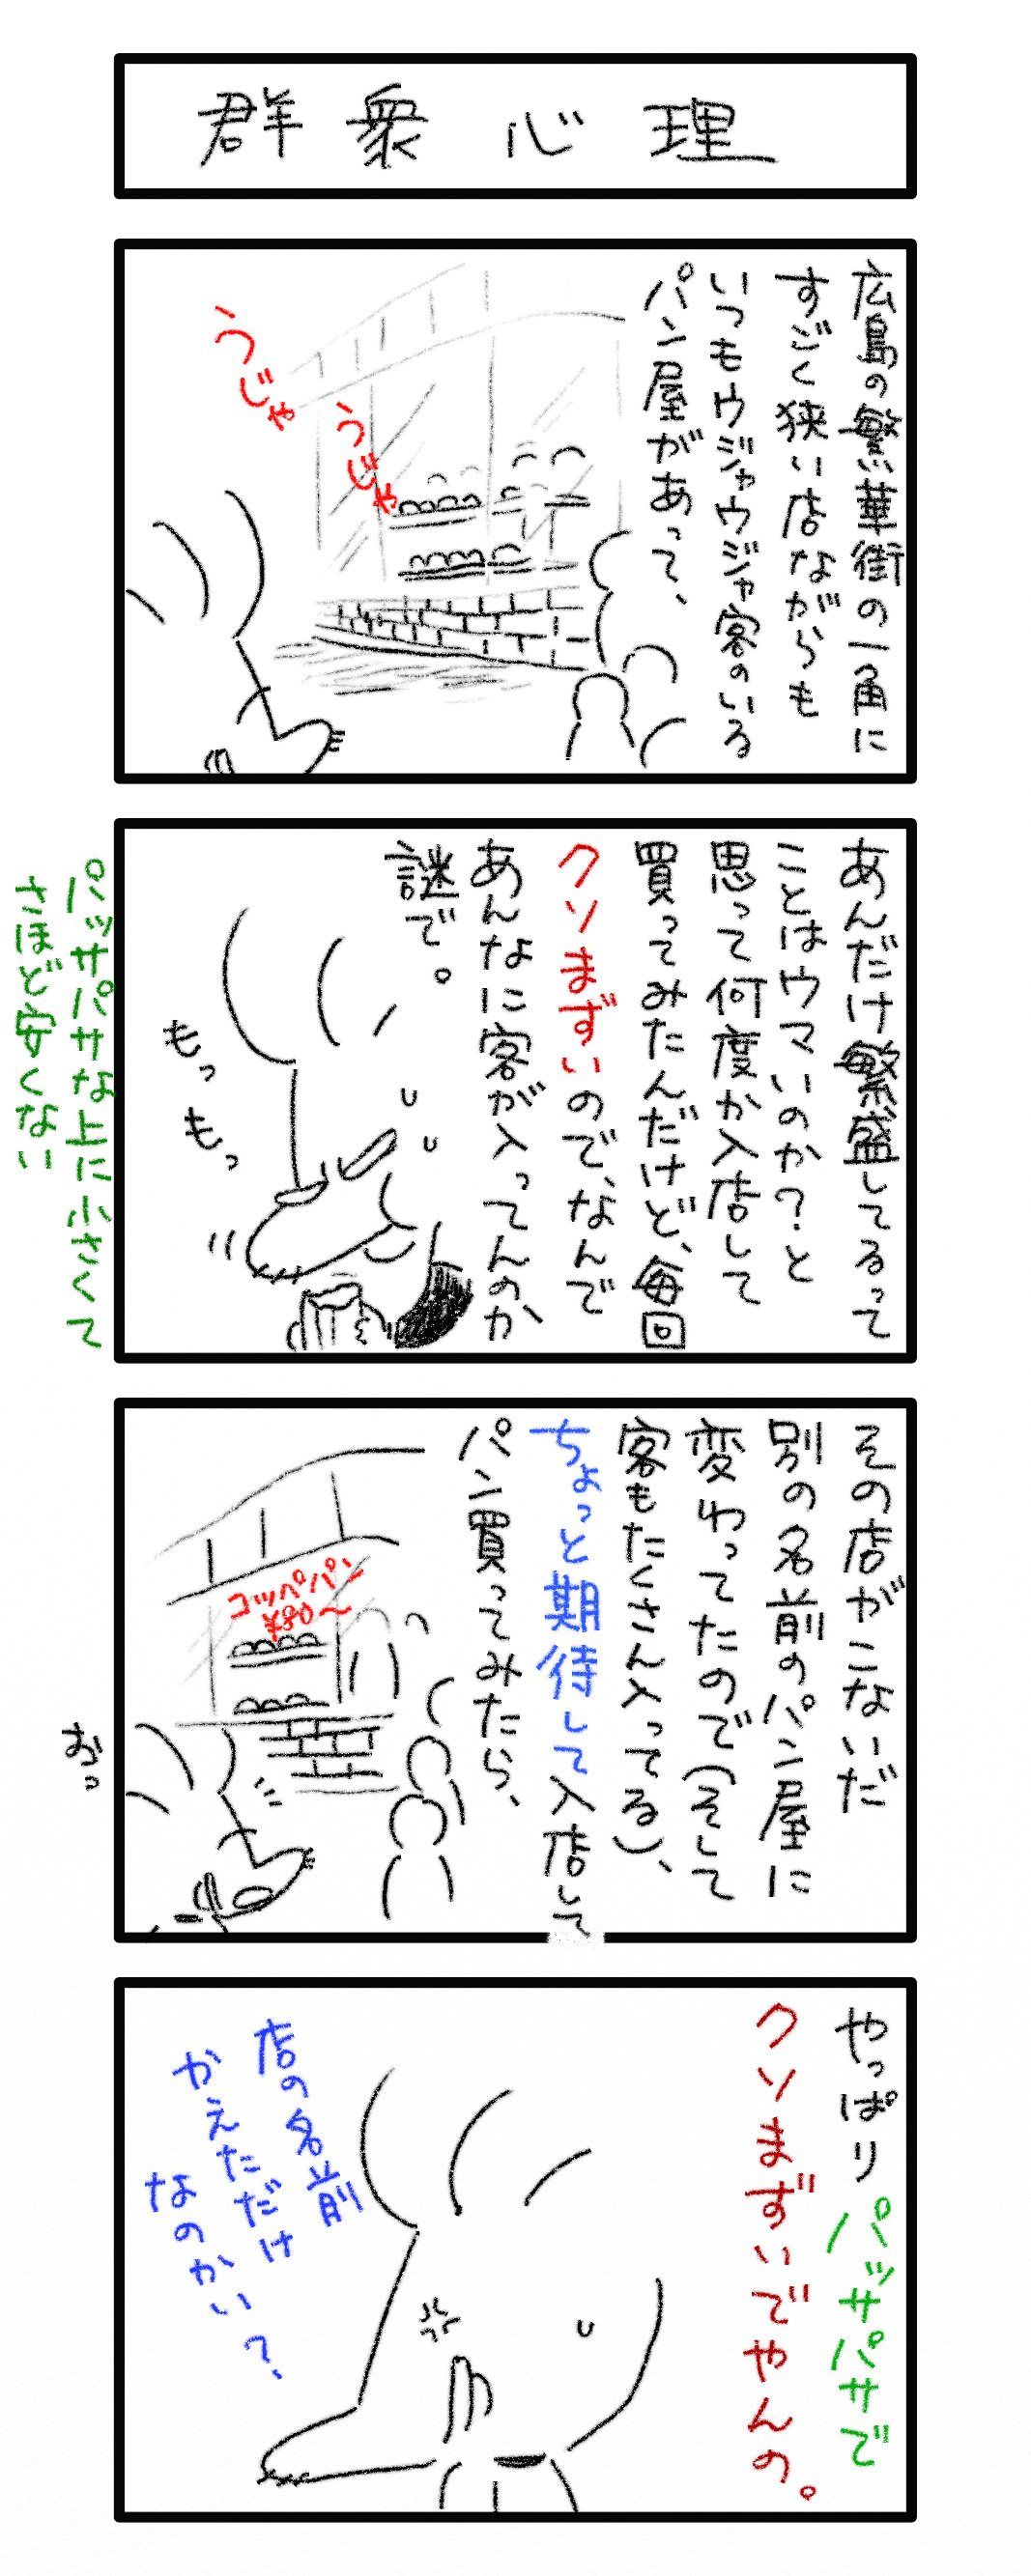 群衆心理
広島の繁華街の一角に
すごく狭い店ながらも
いつもウジャウジャ客のいる
パン屋があって、
うじゃ
うじゃ
あんだけ繁盛してるって
ことはウマいのか?と
思って何度か入店して
買ってみたんだけど、毎回
クソまずいので、なんで
あんなに客が入ってんのか
謎で。
もっ
もっ
パッサパサな上に小さくて
さほど安くない
その店がこないだ
別の名前のパン屋に
変わってたので(そして
客もたくさん入ってる)、
ちょっと期待して入店して
パン買ってみたら、
コッペパン
¥80〜
おっ
やっぱりパッサパサで
クソまずいでやんの。
店の名前
かえただけ
なのかい?